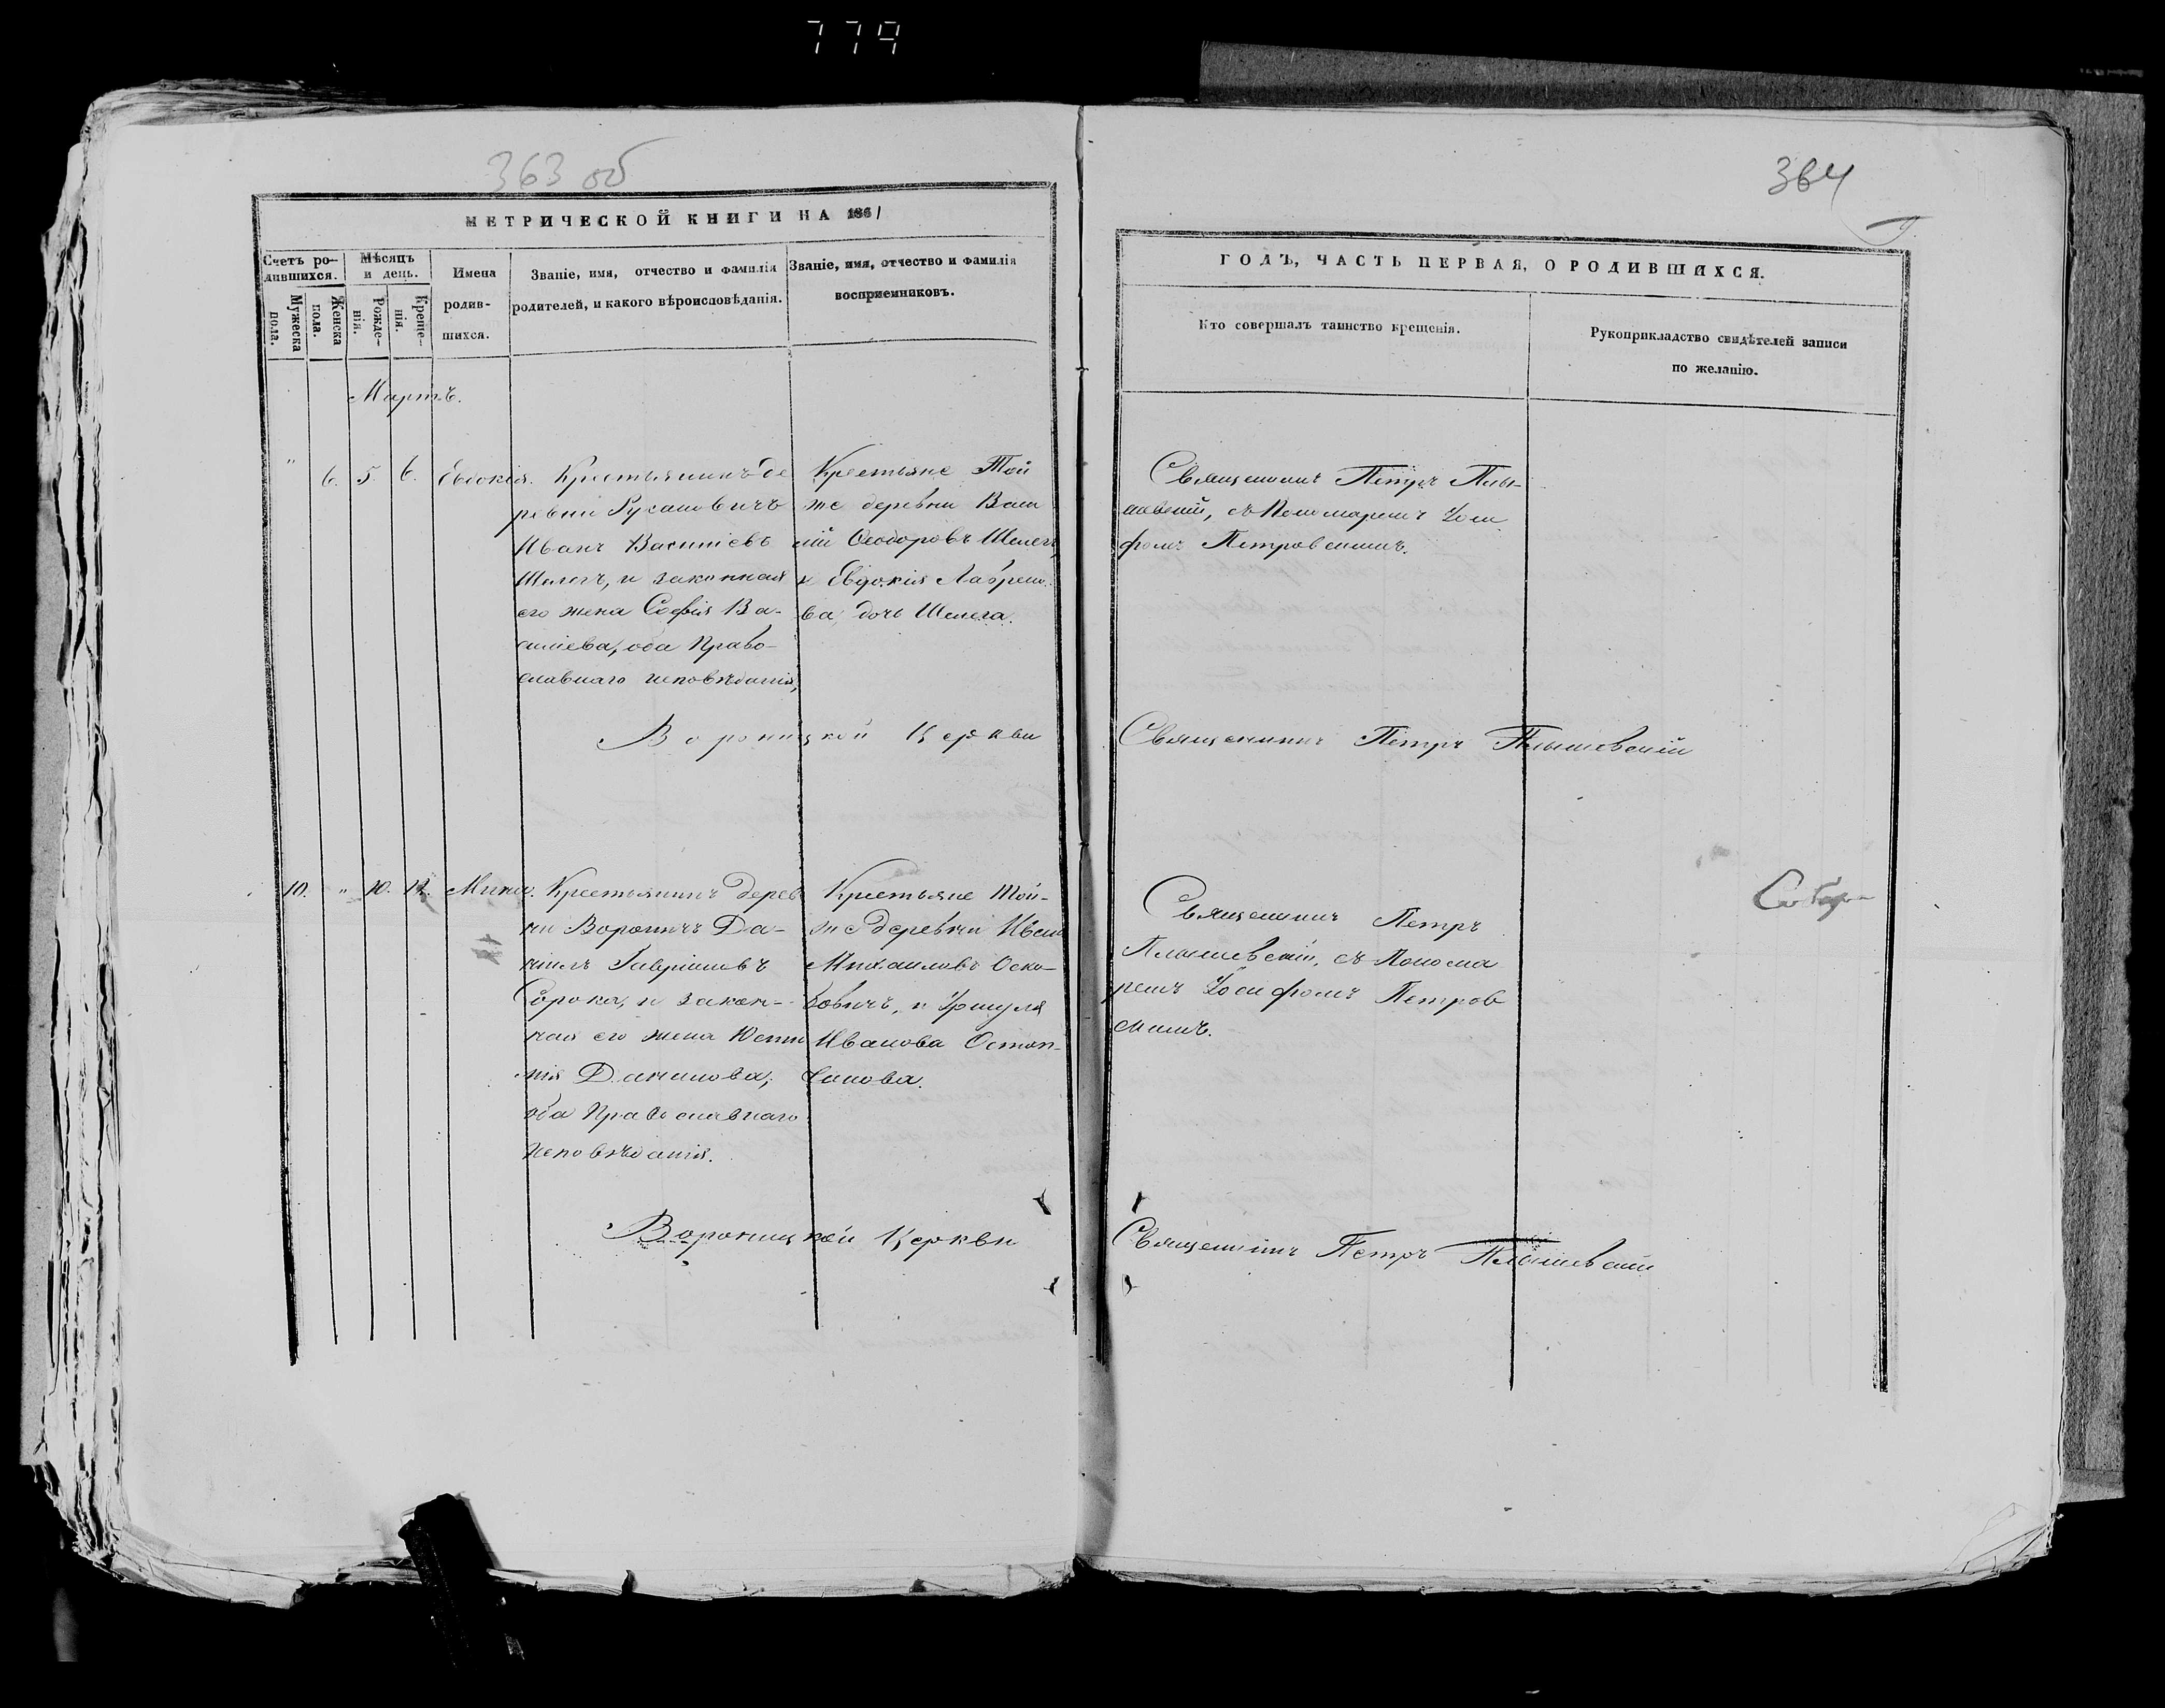 779
363 об
МЕТРИЧЕСКОЙ КНИГИ НА 1861
Счетъ ро-
дившихся.
Мужеска
пола.
Женска
пола.
Мѣсяцъ
и день.
Рожде-
нія.
Креще-
нія.
Имена
родив-
шихся.
Званіе, имя, отчество и фамилія
родителей, и какого вѣроисповѣданія.
Званіе, имя, отчество и фамилія
воспріемниковъ.
Мартъ.
" 6. 5. 6. Евдокія.
Крестьянинъ де
ревни Русановичъ
Иванъ Василіевъ
Шелегъ, и законная
его жена Софія Ва-
силіева, оба Право-
славнаго исповѣданія,
Крестьяне Той
же деревни Васи
лій Ѳеодоровъ Шелегъ,
и Евдокія Лаврено
ва дочь Шелега.
Вороницкой Церкви
10. " 10. 12. Мина.
Крестьянинъ Дерев
ни Вороничъ Да-
ніилъ Гавріиловъ
Сорока, и закон-
ная его жена Юсти
нія Данилова,
оба Православнаго
Исповѣданія.
Крестьяне Той-
же Деревни Иванъ
Михаиловъ Оско-
Иванова
Вороницкой Церкви
364
ГОДЪ, ЧАСТЬ ПЕРВАЯ, О РОДИВШИХСЯ.
Кто совершалъ таинство крещенія.
Рукоприкладство свидѣтелей записи
по желанію.
Священникъ Петръ Плы-
шевскій, съ Пономаремъ Іоси
фомъ Петровскимъ.
Священникъ Петръ Плышевскій
Священникъ Петръ
Плышевскій, съ Понома
ремъ Іосифомъ Петров
скимъ.
Священникъ Петръ Плышевскій